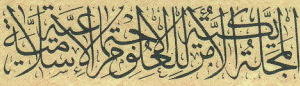 المجلة الأمريكية للعلوم الاجتماعية الإسلامية